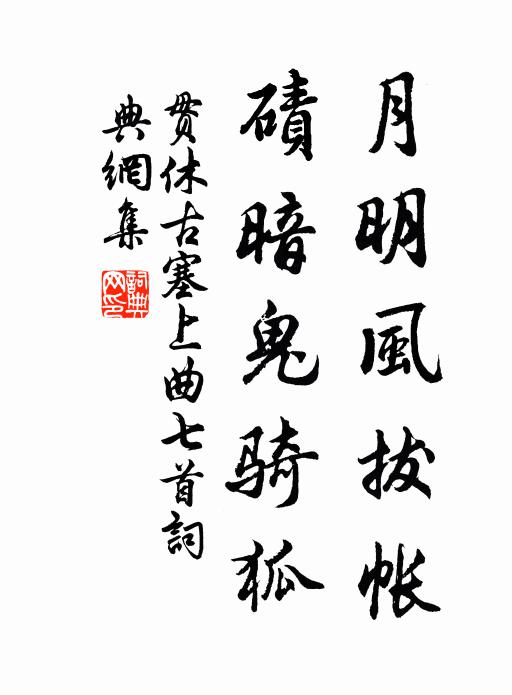 月明風拔帳
磧暗鬼騎狐
贯休古塞上曲七首詞
典網集
詞典網印